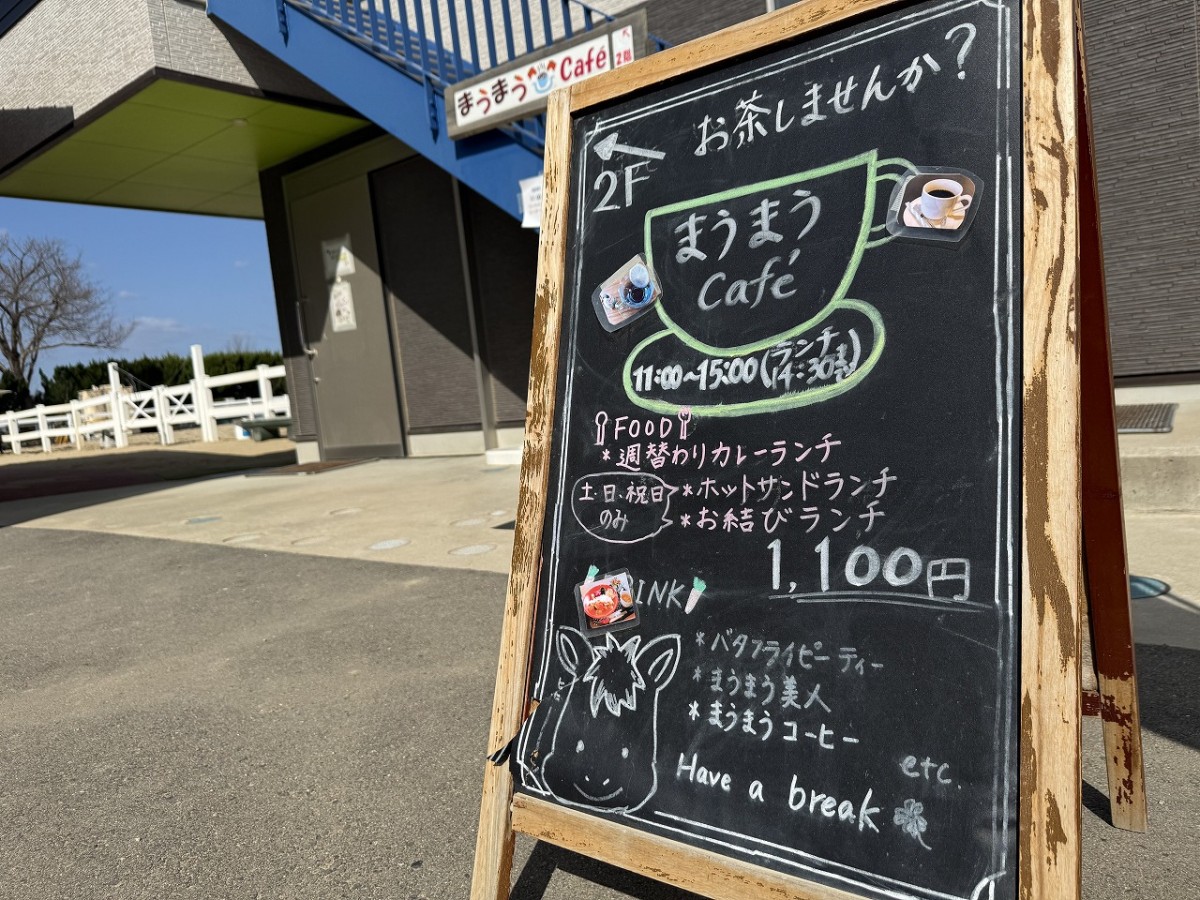 まうまう Café
2階
お茶しませんか?
2F
まうまう
Café
11:00~15:00(ランチ
14:30まで)
FOOD
*週替わりカレーランチ
土・日、祝日
のみ
*ホットサンドランチ
*お結びランチ
1,100円
INK
*バタフライピーティー
*まうまう美人
*まうまうコーヒー
etc.
Have a break